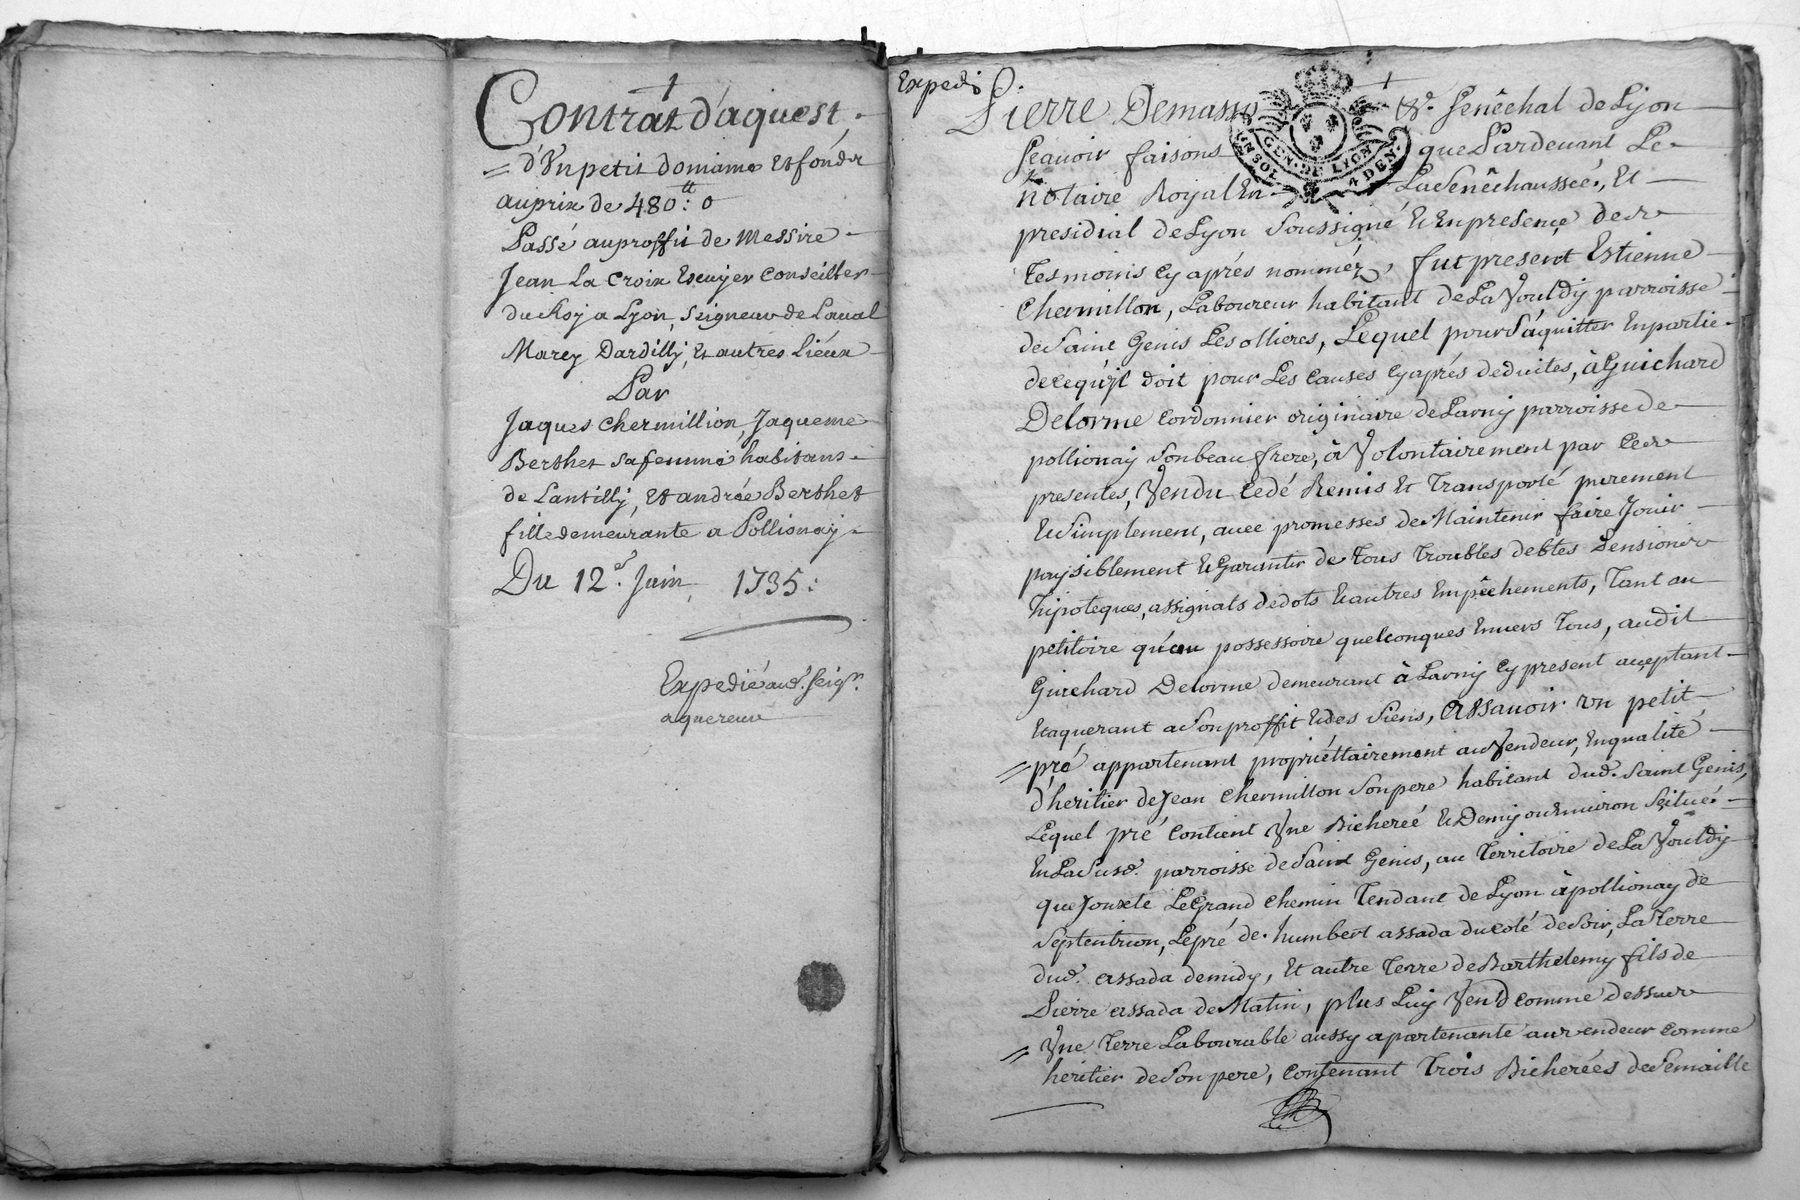 Contrat d'aquest,
d'Un petit domaine et fónds
au prix de 480:tt 0
Passé au proffit de Messire
Jean La Croix Escuyer Conseiller
du Roy a Lyon, Seigneur de Laual
Marcy Dardilly, Et autres Liéux
Par
Jaques Chermillion, Jaqueme
Berthet sa femme habitans
de Lantilly, Et andrée Berthet
fille demeurante a Pollionay
Du 12.e Juin, 1735:
Expedié aud. Seigr.
aquereur
Expedié
Pierre Demasso &a. Senêchal de Lyon
Scauoir faisons que Pardeuant Le
notaire Royal En La Senêchaussée, Et
presidial de Lyon Soussigné & En presence des
Tesmoins Cy aprés nomméz, fut present Estienne
Chermillon, Laboureur habitant de La Vouldy parroisse
de Saint Genis Les ollieres, Lequel pour S'áquitter En partie
de ce qu'jl doit pour Les Causes Cy aprés deduites, à Guichard
Delorme Cordonnier originaire de Larny parroisse de
pollionay Son beau frere, à Volontairement par Ces
presentes, Vendu Cedé Remis Et Transporté purement
& Simplement, auec promesses de Maintenir faire Jouir
paysiblement & Garentir de Tous Troubles debtes Pensions
hipoteques, assignats de dots & autres Empêchements, Tant au
petitoire qu'au possessoire quelconques Enuers Tous, audit
Guichard Delorme demeurant à Larny Cy present acceptant
& aquerant a Son proffit & des Siens, Assauoir Vn petit
pré appartenant propriéttairement au Vendeur, En qualité
d'heritier de Jean Chermillon Son pere habitant dud. Saint Genis,
Lequel pré Contient Vne Bicherée & Demy ou Enuiron Scitué
En La Susd. parroisse de Saint Genis, au Territoire de La Vouldy
que Jouxte Le Grand Chemin Tendant de Lyon à pollionay de
Septentrion, Le pré de humbert assada du coté de Soir, La Terre
dud. assada de midy, Et autre Terre de Barthelemy fils de
Pierre assada de Matin, plus Luy Vend Comme dessus
Vne Terre Labourable aussy apartenante au Vendeur Comme
heritier de Son pere, Contenant Trois Bicherées de Semaille
GEN. DE LYON
UN SOL 4 DEN.